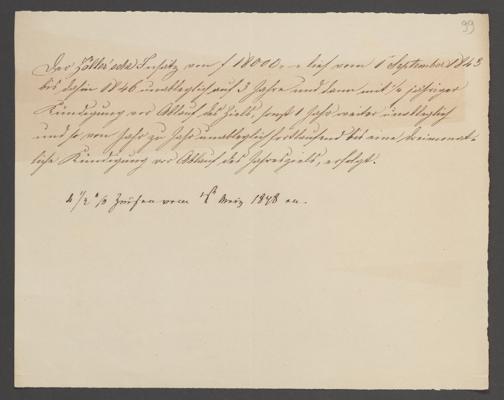 99
Der Zöller'sche Insatz von f 18000. – lief vom 1 September 1843
bis dahin 1846 unableglich auf 3 Jahre und dann mit ¼ jähriger
Kündigung vor Ablauf des Ziels, sonst 1 Jahr weiter unableglich
und so von Jahr zu Jahr unableglich fortlaufend bis eine dreimonat-
liche Kündigung vor Ablauf des Jahresziels, erfolgt.
4 1/2 % Zinsen vom 1 März 1848 an.